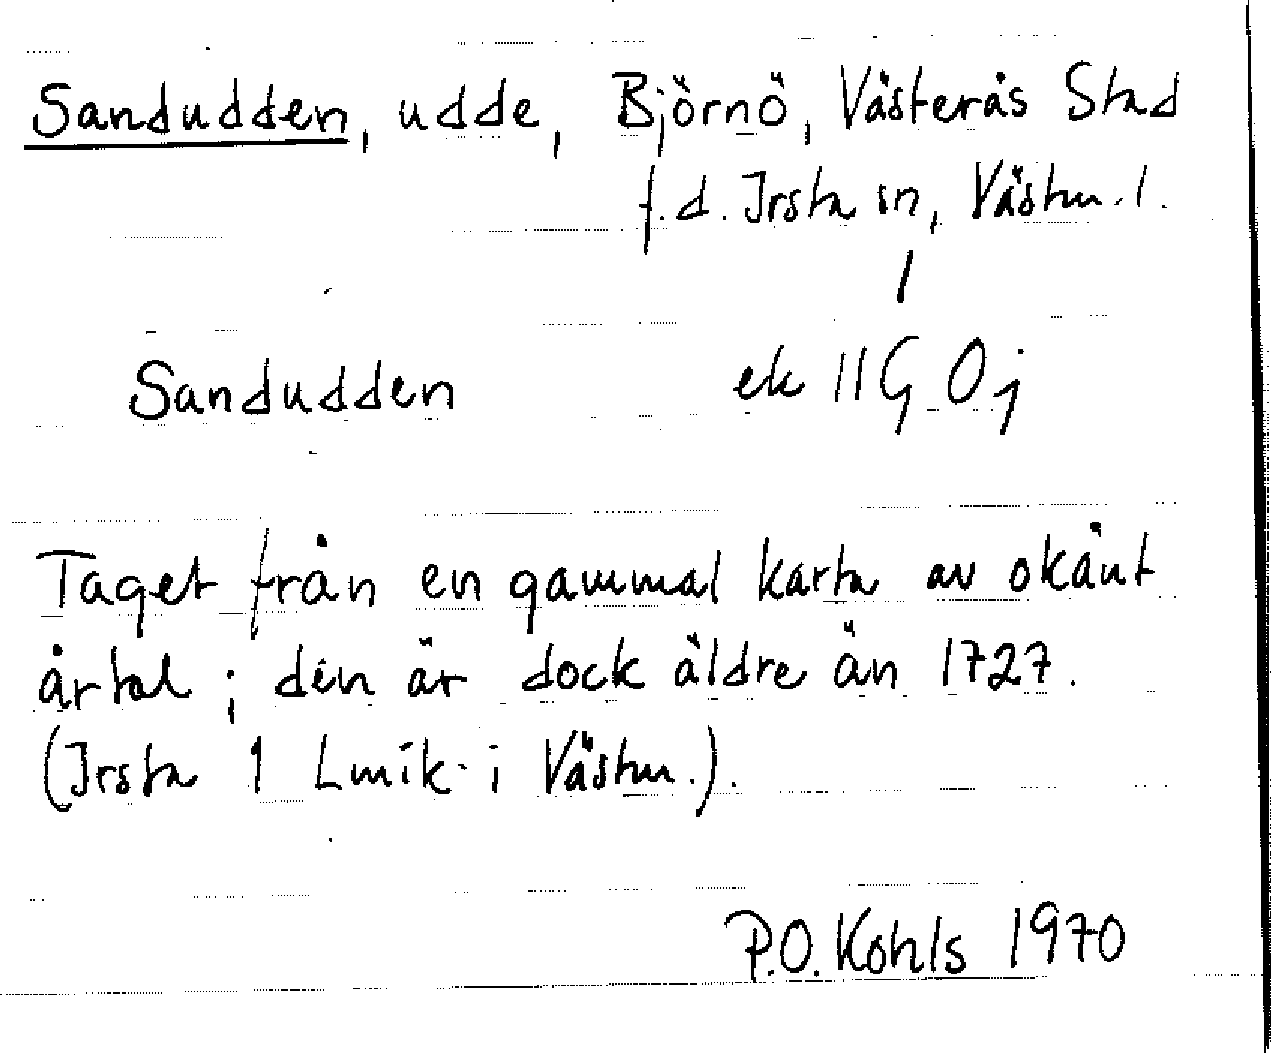 Sandudden, udde, Björnö, Västerås Stad
f.d. Irsta sn, Västm. l.
Sandudden ek 11G 0j
Taget från en gammal karta av okänt
årtal; den är dock äldre än 1727.
(Irsta 1 Lmik. i Västm.).
P.O. Kohls 1970